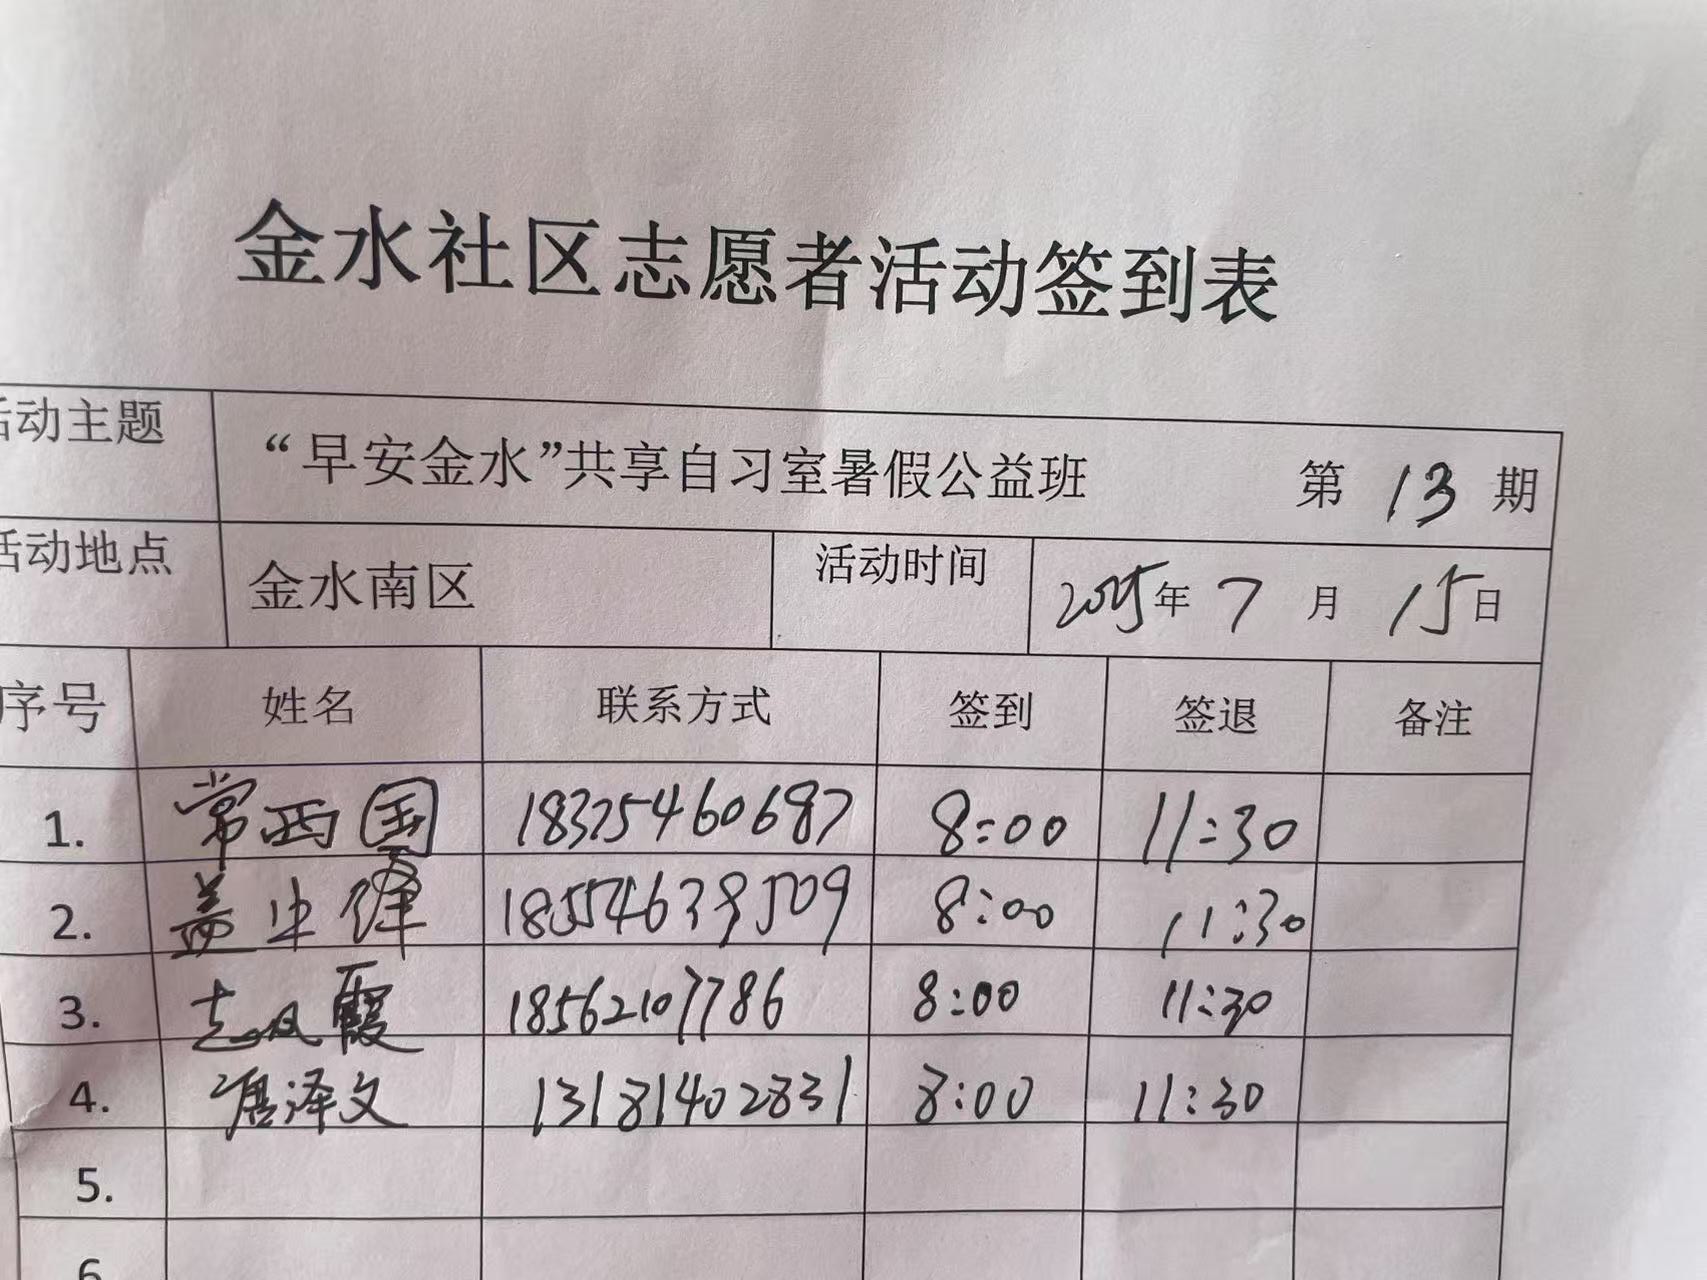 金水社区志愿者活动签到表
活动主题 “早安金水”共享自习室暑假公益班 第 13 期
活动地点 金水南区 活动时间 2025年 7 月 15日
序号 姓名 联系方式 签到 签退 备注
1. 常西国 18325460687 8:00 11:30
2. 盖中锋 18554639509 8:00 11:30
3. 18562107786 8:00 11:30
4. 唐泽文 13181402831 8:00 11:30
5.
6